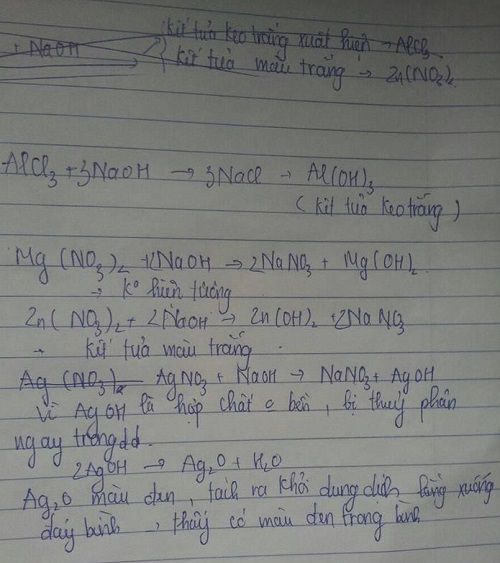 kết tủa keo trắng xuất hiện → AlCl3
+ NaOH
kết tủa màu trắng → Zn(NO3)2
AlCl3 + 3NaOH → 3NaCl → Al(OH)3
(kết tủa keo trắng)
Mg(NO3)2 + 2NaOH → 2NaNO3 + Mg(OH)2.
→ k° hiện tượng
Zn(NO3)2 + 2NaOH → Zn(OH)2 + 2NaNO3
→ kết tủa màu trắng.
Ag(NO3)2 AgNO3 + NaOH → NaNO3 + AgOH
Vì AgOH là hợp chất o bền, bị thuỷ phân
ngay trong dd.
2AgOH → Ag2O + H2O
Ag2O màu đen, tách ra khỏi dung dịch, lắng xuống
đáy bình → thấy có màu đen trong bình